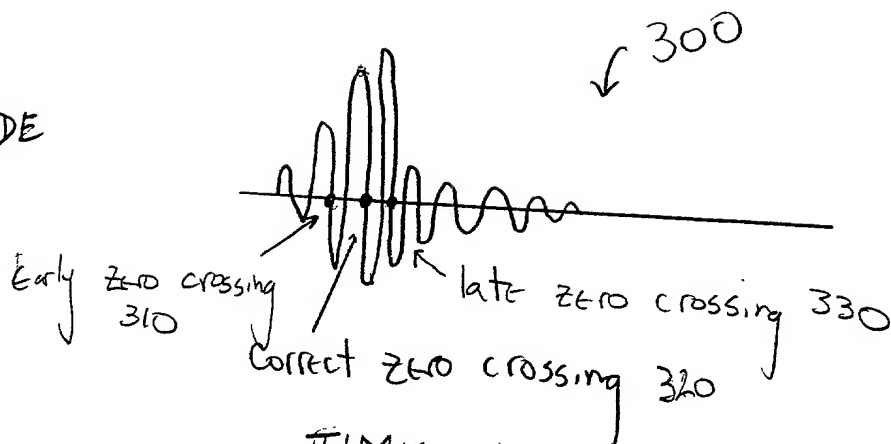 300
DE
Early zero crossing
310
late zero crossing 330
Correct zero crossing 320